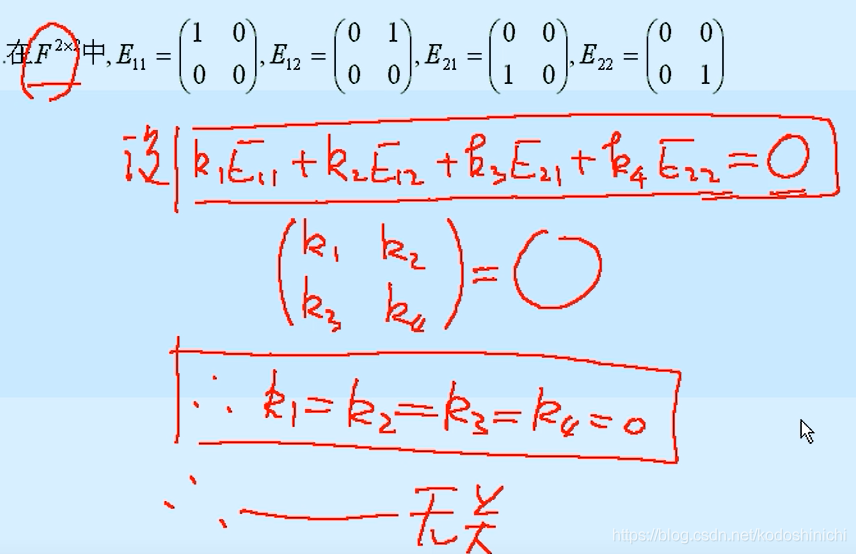 .在F^{2×2}中, E₁₁ = (1 0; 0 0), E₁₂ = (0 1; 0 0), E₂₁ = (0 0; 1 0), E₂₂ = (0 0; 0 1)
设 k₁E₁₁ + k₂E₁₂ + k₃E₂₁ + k₄E₂₂ = 0
(k₁ k₂; k₃ k₄) = 0
∴ k₁ = k₂ = k₃ = k₄ = 0
∴ —— 无关
https://blog.csdn.net/kodoshinichi